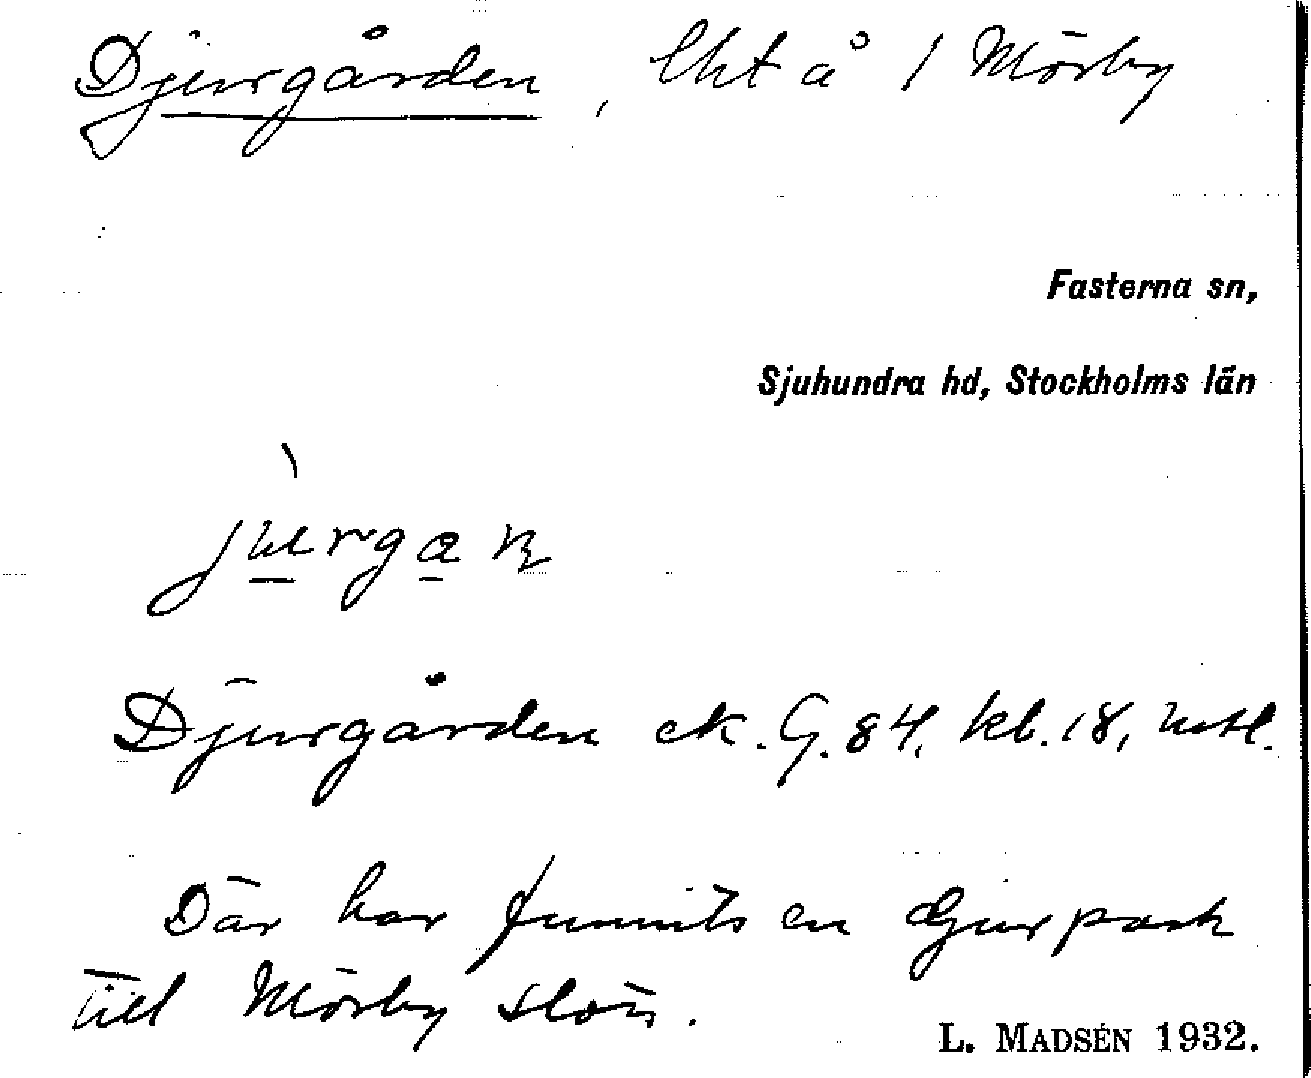 Djurgården, lht å 1 Mörby
Fasterna sn,
Sjuhundra hd, Stockholms län
Djurgården ek. G. 84, kbl. 18,
Där har funnits en djurpark
till Mörby slott.
L. MADSÉN 1932.